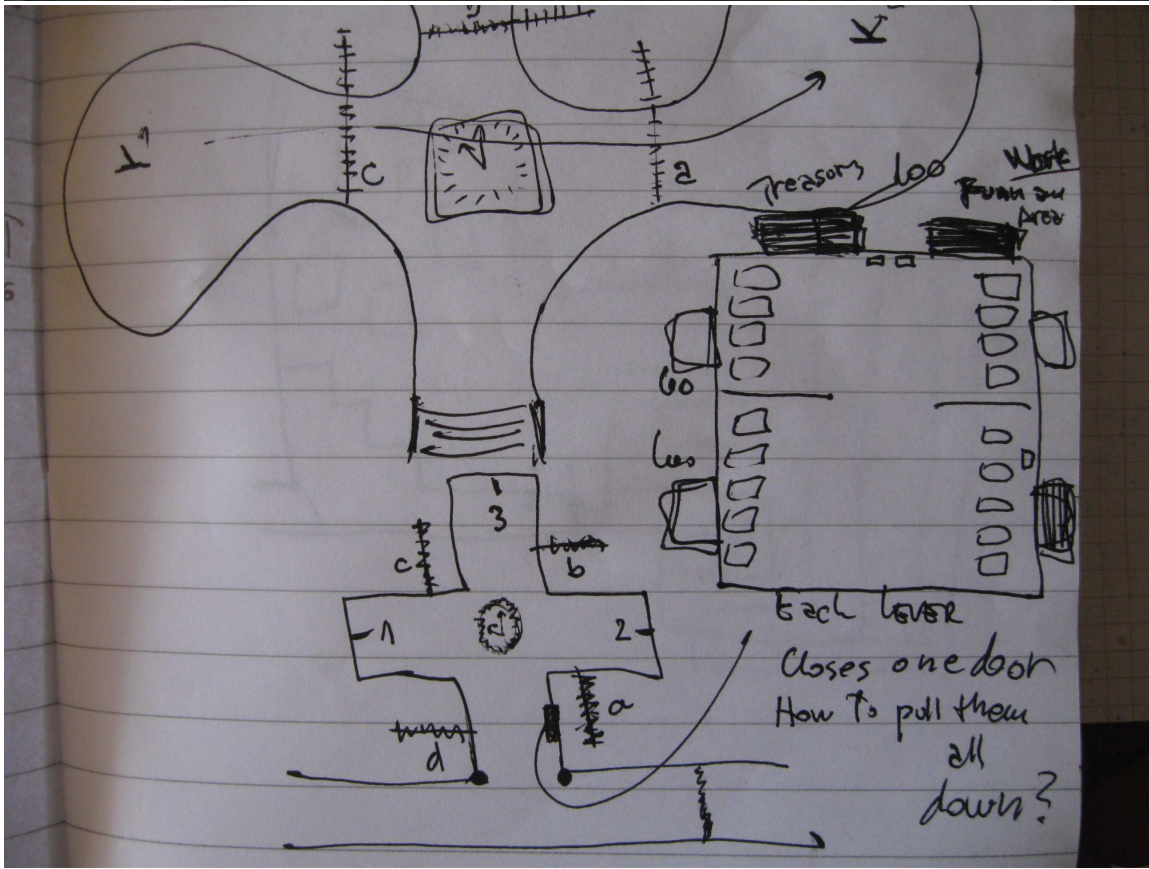 K
K
c
a
Treasors
loo
Work
Area
Go
3
c
b
1
2
2
a
d
Each LEVER
Closes one door
How To pull them
all
down?